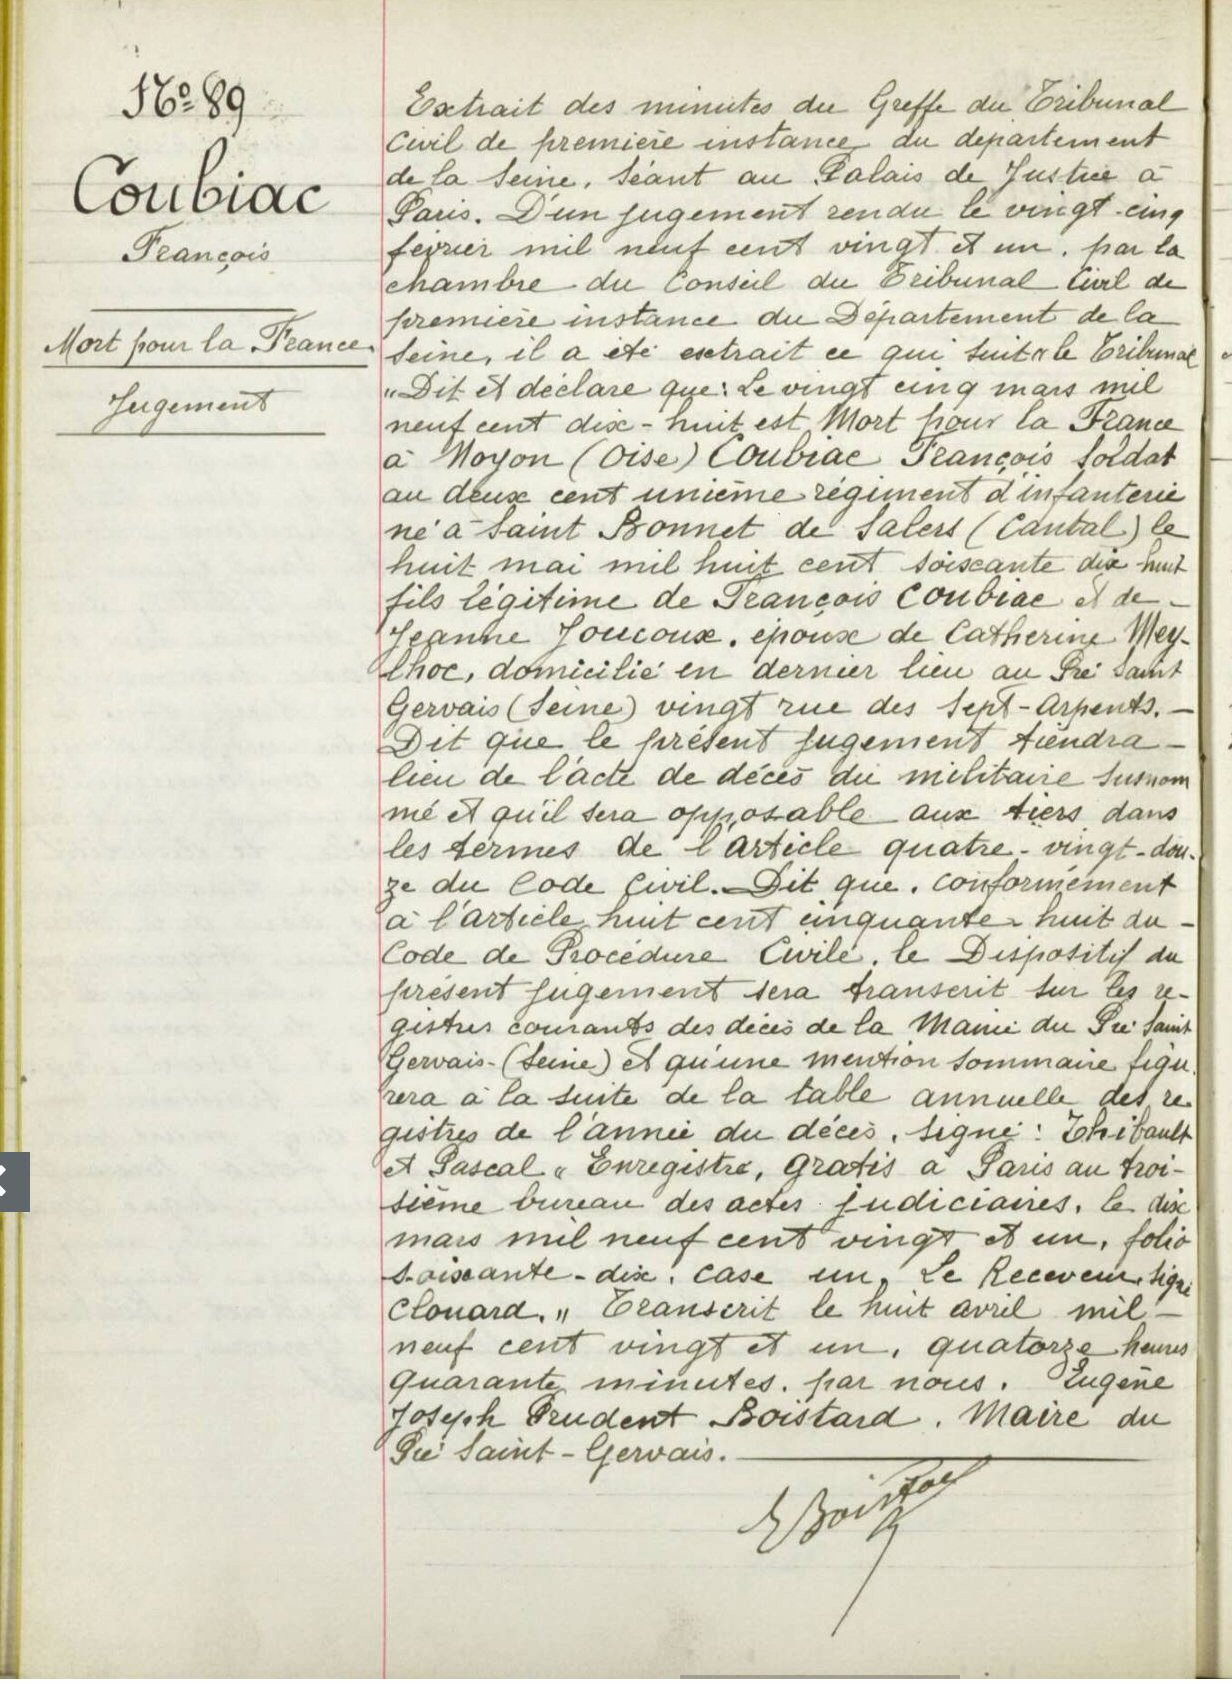 No 89
Coubiac
François
Mort pour la France.
Jugement
Extrait des minutes du Greffe du Tribunal
Civil de première instance du département
de la Seine, séant au Palais de Justice à
Paris. D'un jugement rendu le vingt-cinq
février mil neuf cent vingt et un, par la
chambre du Conseil du Tribunal Civil de
première instance du Département de la
Seine, il a été extrait ce qui suit "le Tribunal
"Dit et déclare que: Le vingt cinq mars mil
neuf cent dix-huit est Mort pour la France
à Noyon (Oise) Coubiac François Soldat
au deux cent unième régiment d'infanterie
né à Saint Bonnet de Salers (Cantal) le
huit mai mil huit cent soixante dix huit
fils légitime de François Coubiac et de -
Jeanne Joucoux, époux de Catherine Mey-
lhoc, domicilié en dernier lieu au Pré Saint
Gervais (Seine) vingt rue des Sept-Arpents. -
Dit que le présent jugement tiendra -
lieu de l'acte de décès du militaire susnom
mé et qu'il sera opposable aux tiers dans
les termes de l'article quatre-vingt-dou-
ze du Code Civil. Dit que, conformément
à l'article huit cent cinquante-huit du -
Code de Procédure Civile, le Dispositif du
présent jugement sera transcrit sur les re-
gistres courants des décès de la Mairie du Pré Saint
Gervais-(Seine) et qu'une mention sommaire figu-
rera à la suite de la table annuelle des re-
gistres de l'année du décès, signé: Thibault
et Pascal " Enregistré, gratis à Paris au troi-
sième bureau des actes judiciaires, le dix
mars mil neuf cent vingt et un, folio
soixante-dix, case un, Le Receveur, signé
Clouard." Transcrit le huit avril mil -
neuf cent vingt et un, quatorze heures
quarante minutes, par nous, Eugène
Joseph Prudent Boistard, Maire du
Pré Saint-Gervais.
E Boistard